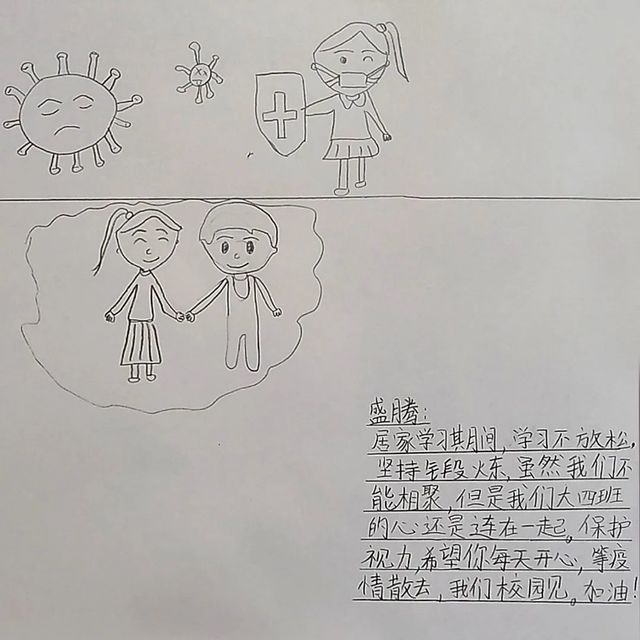 盛腾:
居家学习其月间,学习不放松,
坚持钅段火东,虽然我们不
能相聚,但是我们大四班
的心还是连在一起。保护
视力,希望你每天开心,等疫
情散去,我们校园见。加油!